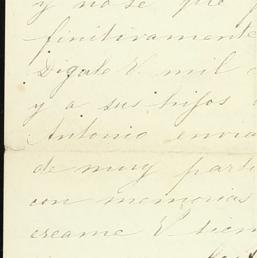 y no se que p
finitivamente
Digale V. mil
y a sus hijos
Antonio envia
de muy parti
con memorias
creame V. siem